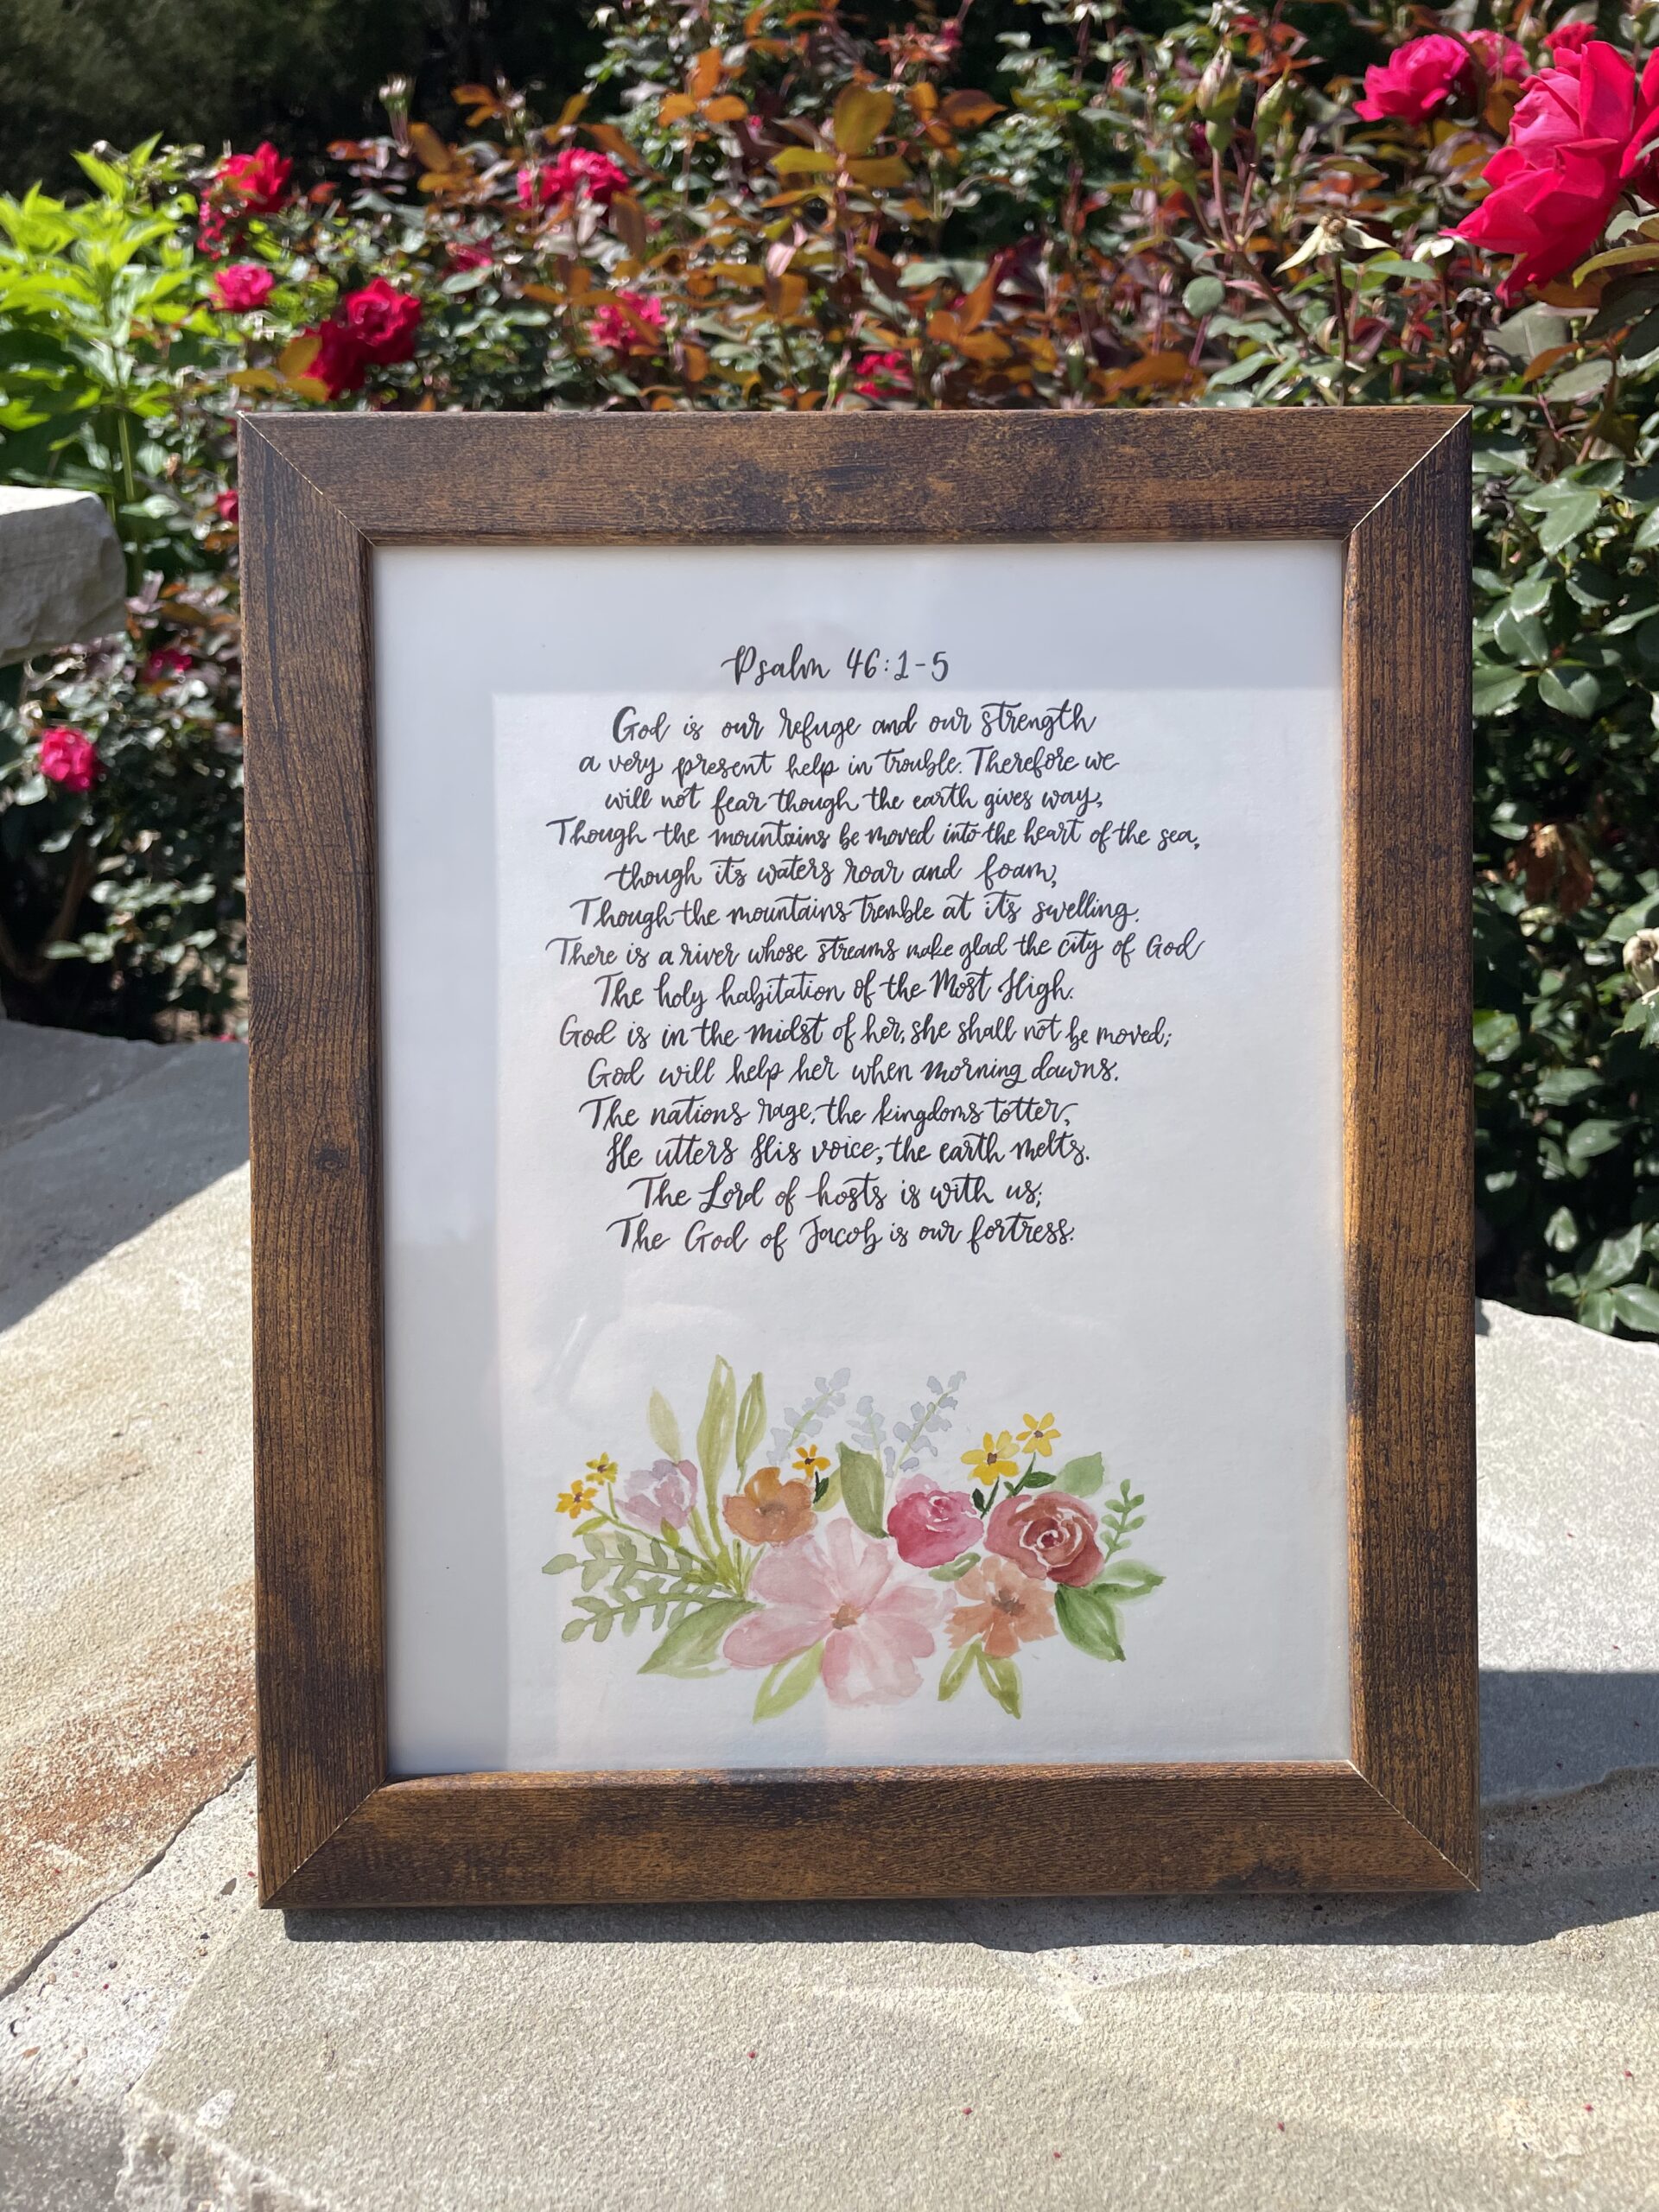 Psalm 46:1-5
God is our refuge and our strength
a very present help in trouble. Therefore we
will not fear though the earth gives way,
Though the mountains be moved into the heart of the sea,
though its waters roar and foam,
Though the mountains tremble at its swelling.
There is a river whose streams make glad the city of God
The holy habitation of the Most High.
God is in the midst of her, she shall not be moved;
God will help her when morning dawns.
The nations rage, the kingdoms totter,
He utters His voice, the earth melts.
The Lord of hosts is with us;
The God of Jacob is our fortress.